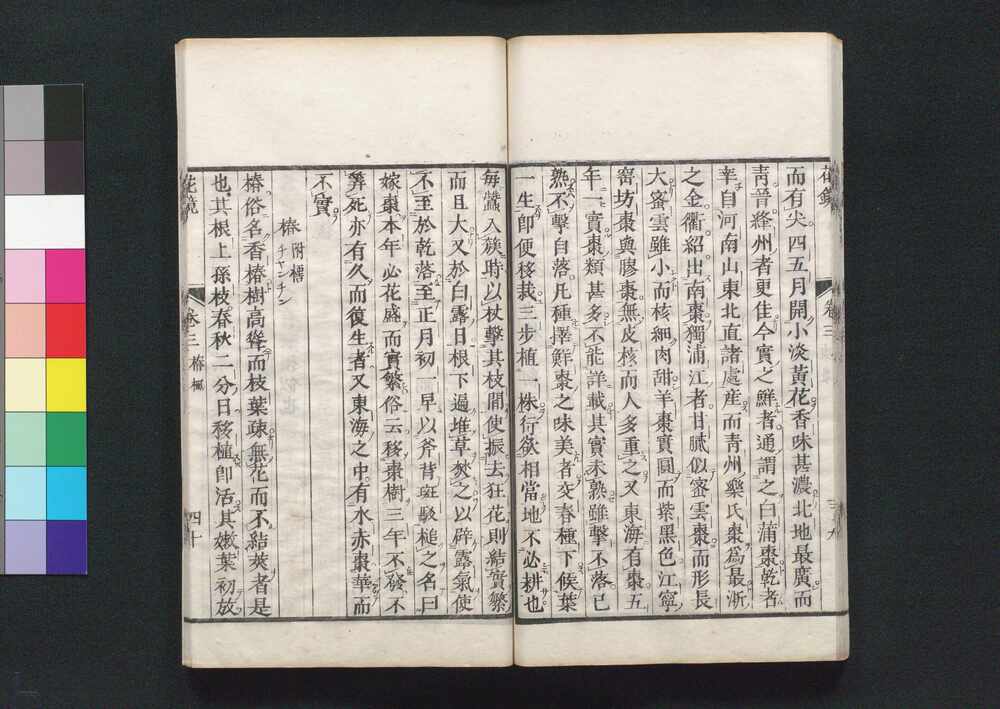 而有尖四五月開小淡黄花香味甚濃北地最廣而
青晉絳州者更佳今實之鮮者通謂之白蒲棗乾者
幸自河南山東北直諸處産而青州樂氏棗為最浙
之金衢紹出南棗獨浦江者甘膩似蜜雲棗而形長
大蜜雲雖小而核細肉甜羊棗實圓而紫黑色江寧
窑坊棗與膠棗無皮核而人多重之又東海有棗五
年一實棗類甚多不能詳載其實未熟雖擊不落已
熟不擊自落凡種擇鮮棗之味美者交春種下候葉
一生即便移栽三步植一株行欲相當地不必耕也
花鏡
卷三
毎蠶入簇時以杖擊其枝間使振去狂花則結實繁
而且大又於白露日根下遍堆草焚之以辟露氣使
不至於乾落至正月初一早以斧背斑駁槌之名曰
嫁棗本年必花盛而實繁俗云移棗樹三年不發不
算死亦有久而復生者又東海之中有水赤棗華而
不實
椿附樗
チャンチン
椿俗名香椿樹高聳而枝葉疎無花而不結莢者是
也其根上孫枝春秋二分日移植即活其嫩葉初放
花鏡
卷三
椿楓
四十